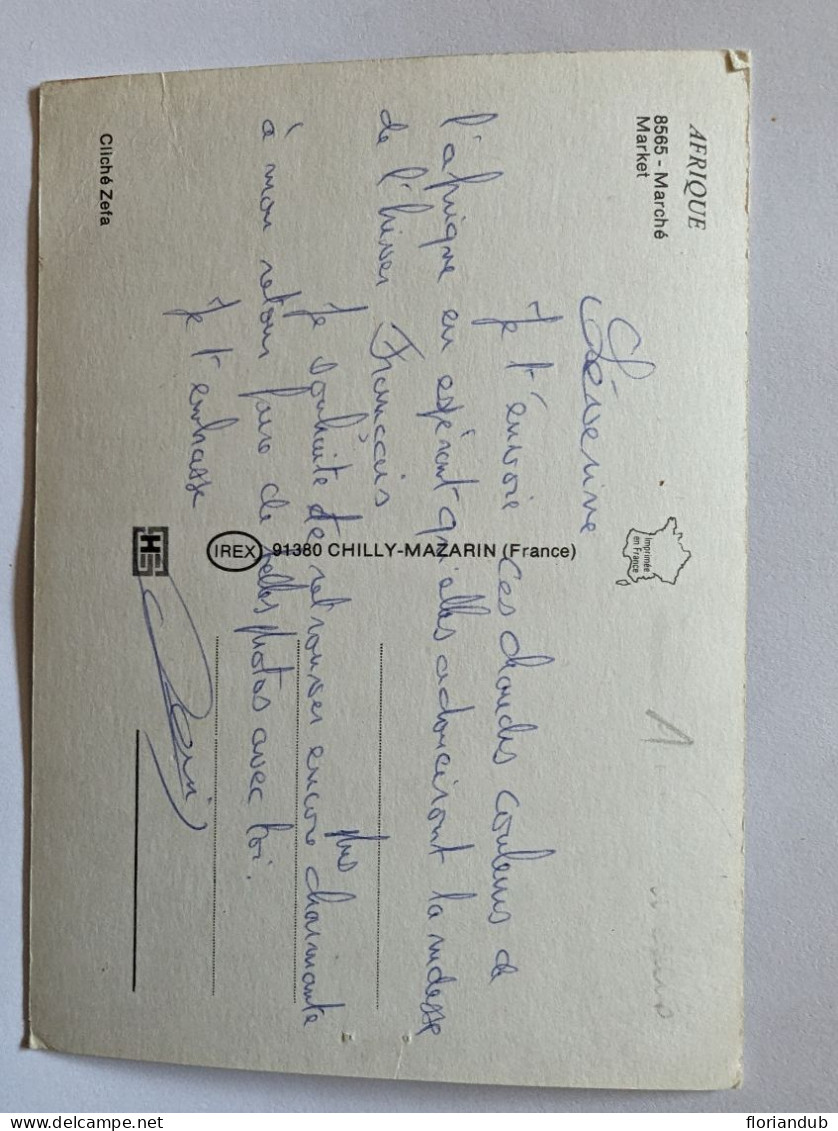 AFRIQUE
8565 - Marché
Market
Imprimée
en France
Séverine
Je t'envoie ces chaudes couleurs de
l'afrique en espérant qu'elles adouciront la rudesse
de l'hiver Français
Je souhaite te retrouver encore plus charmante
à mon retour faire de belles photos avec toi.
Je t'embrasse
IREX 91380 CHILLY-MAZARIN (France)
HS
Cliché Zefa
floriandub